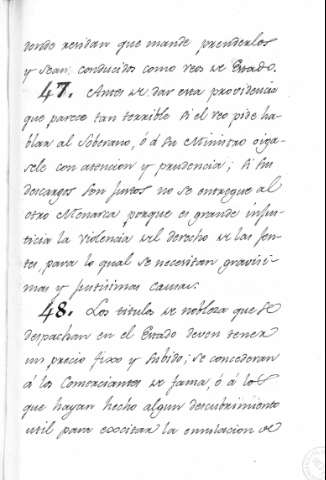 donde residan que mande prenderlos
y sean conducidos como reos de Estado.
47. Antes de dar esta providencia
que parece tan terrible si el reo pide ha-
blar al Soberano, ó á su Ministro oiga-
sele con atencion y prudencia; si sus
descargos son justos no se entregue al
otro Monarca porque es grande injus-
ticia la violencia del derecho de las jen-
tes, para lo qual se necesitan gravisi-
mas y justisimas causas.
48. Los titulos de nobleza que se
despachan en el Estado deven tener
un precio fixo y subido; se concederan
á los Comerciantes de fama, ó á los
que hayan hecho algun descubrimiento
util para excitar la emulacion de